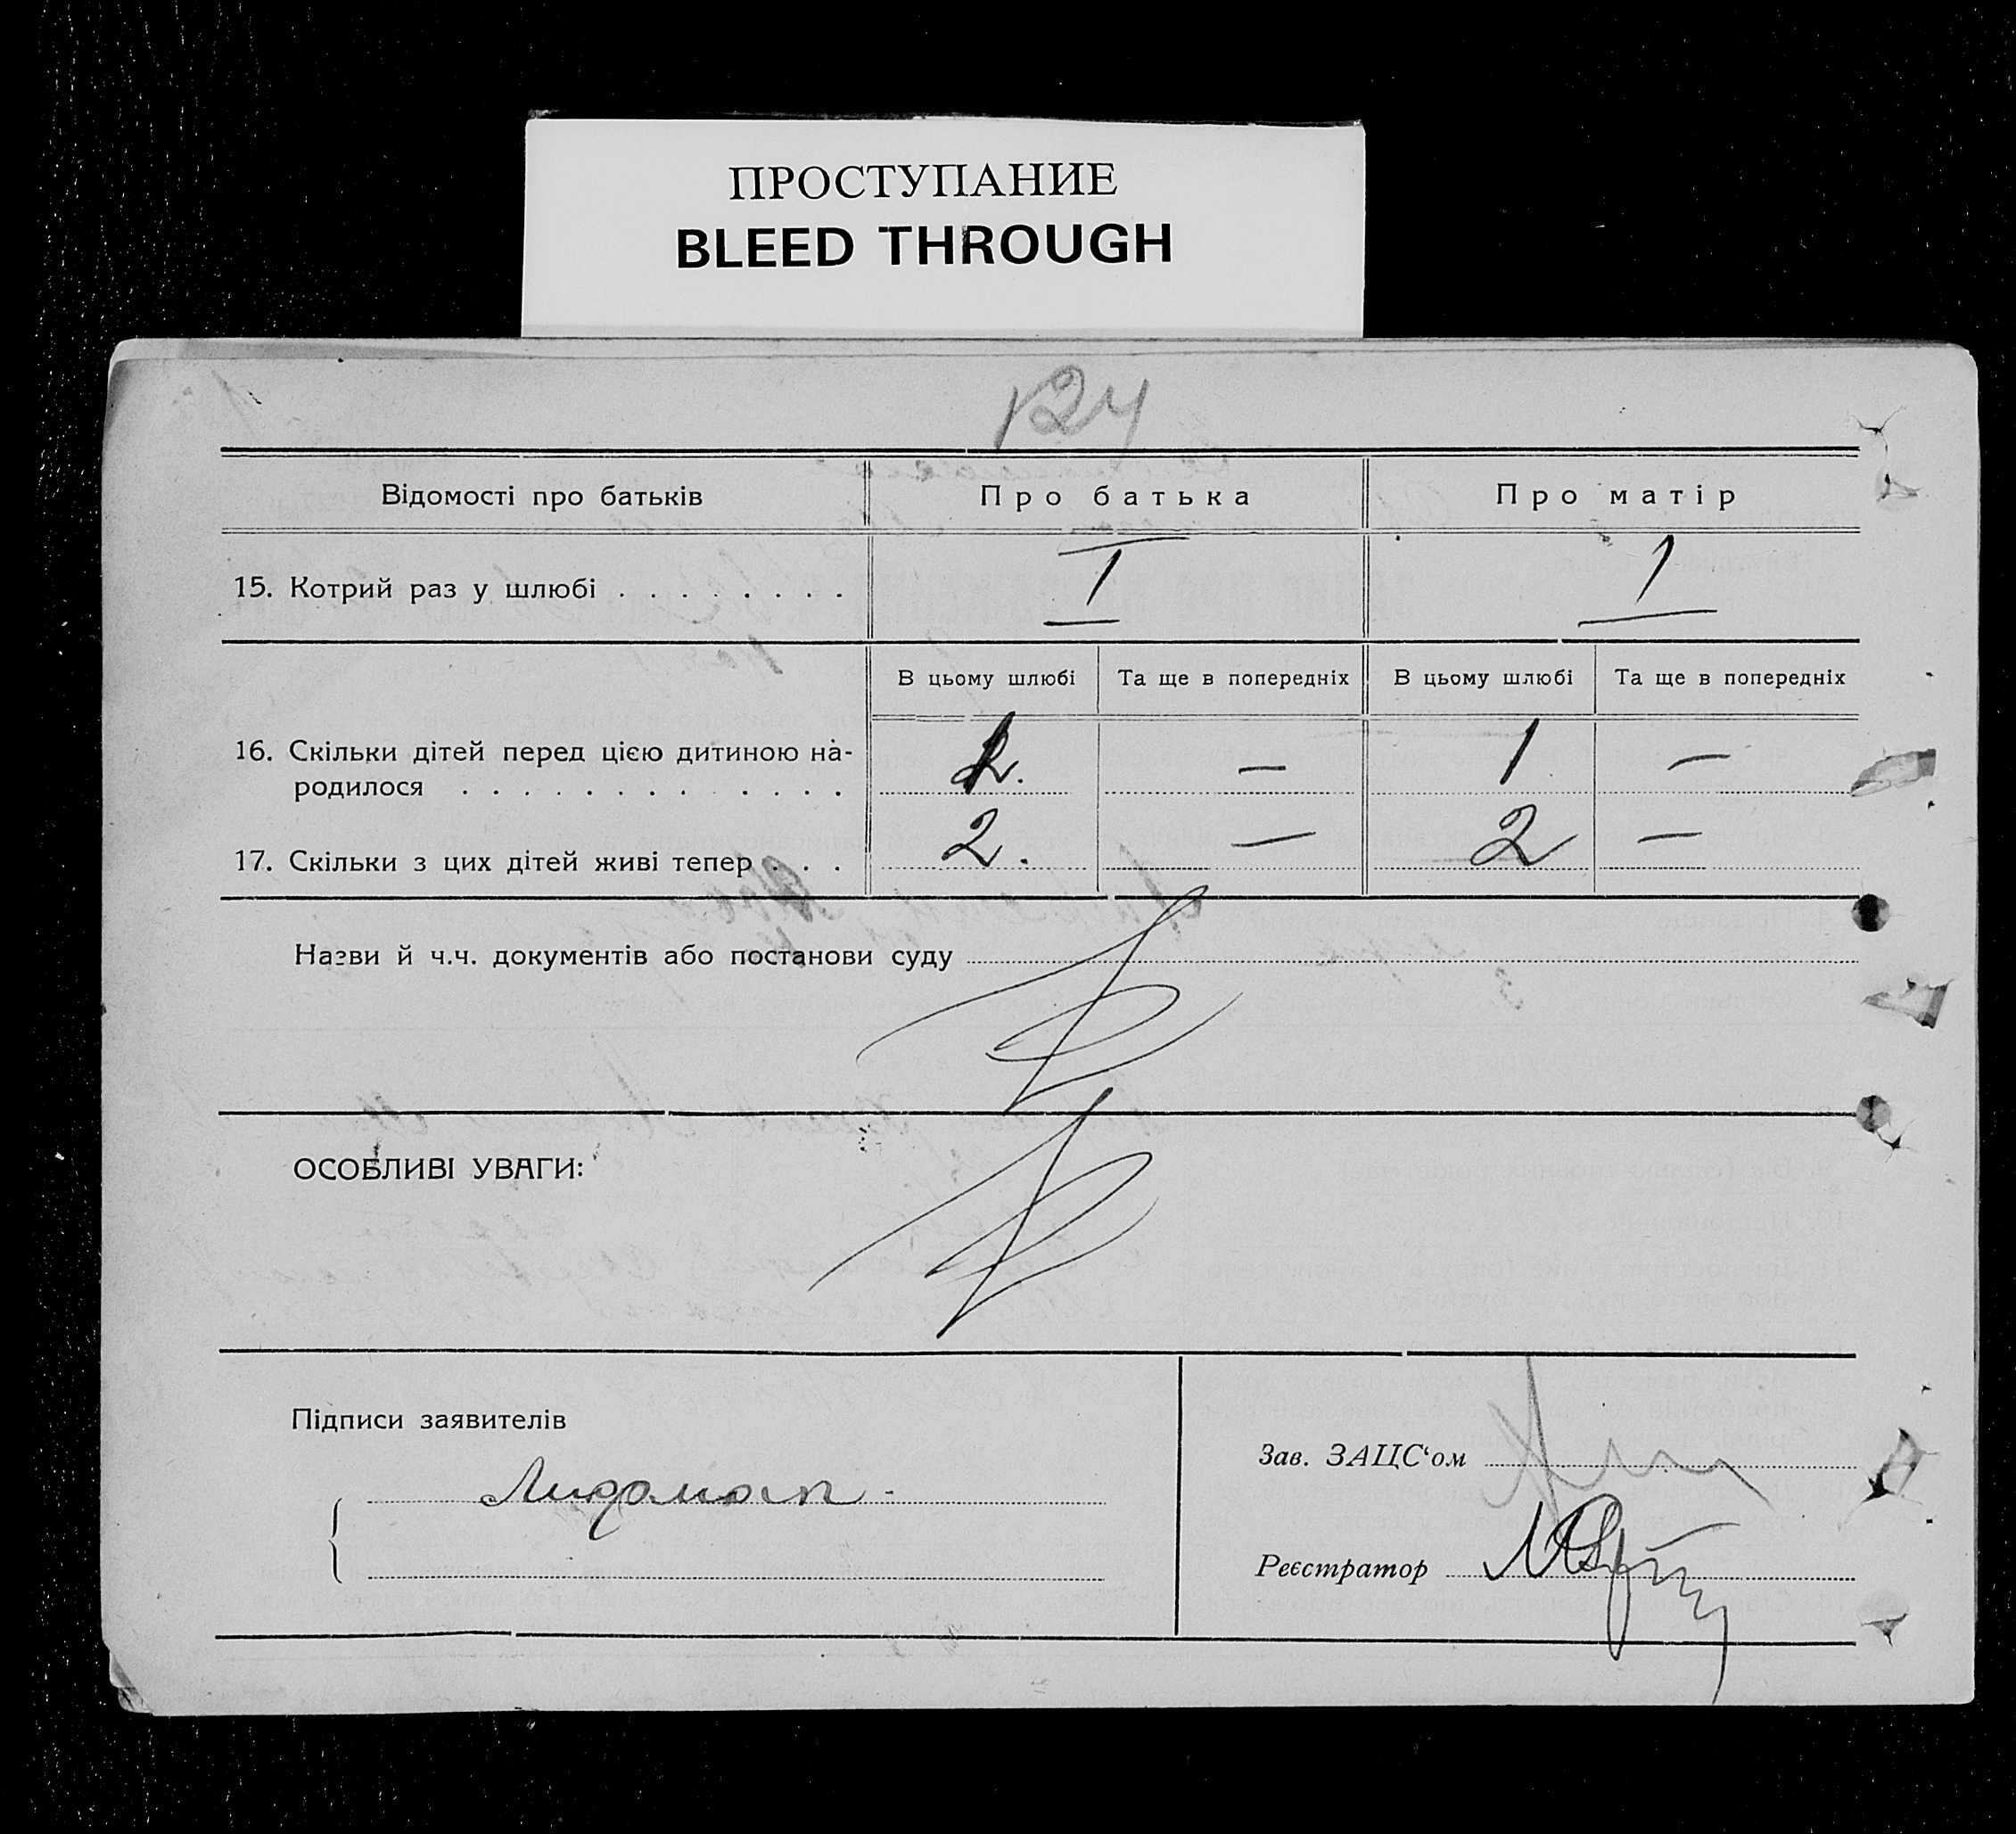 ПРОСТУПАНИЕ
BLEED THROUGH
124
Відомості про батьків Про батька Про матір
15. Котрий раз у шлюбі . . . . . . . . I 1
В цьому шлюбі Та ще в попередніх В цьому шлюбі Та ще в попередніх
16. Скільки дітей перед цією дитиною на-
родилося . . . . . . . . . . . . . — 1 —
17. Скільки з цих дітей живі тепер . . . 2. — 2 —
Назви й ч.ч. документів або постанови суду
ОСОБЛИВІ УВАГИ:
Підписи заявителів
Зав. ЗАЦС‘ом
Реєстратор